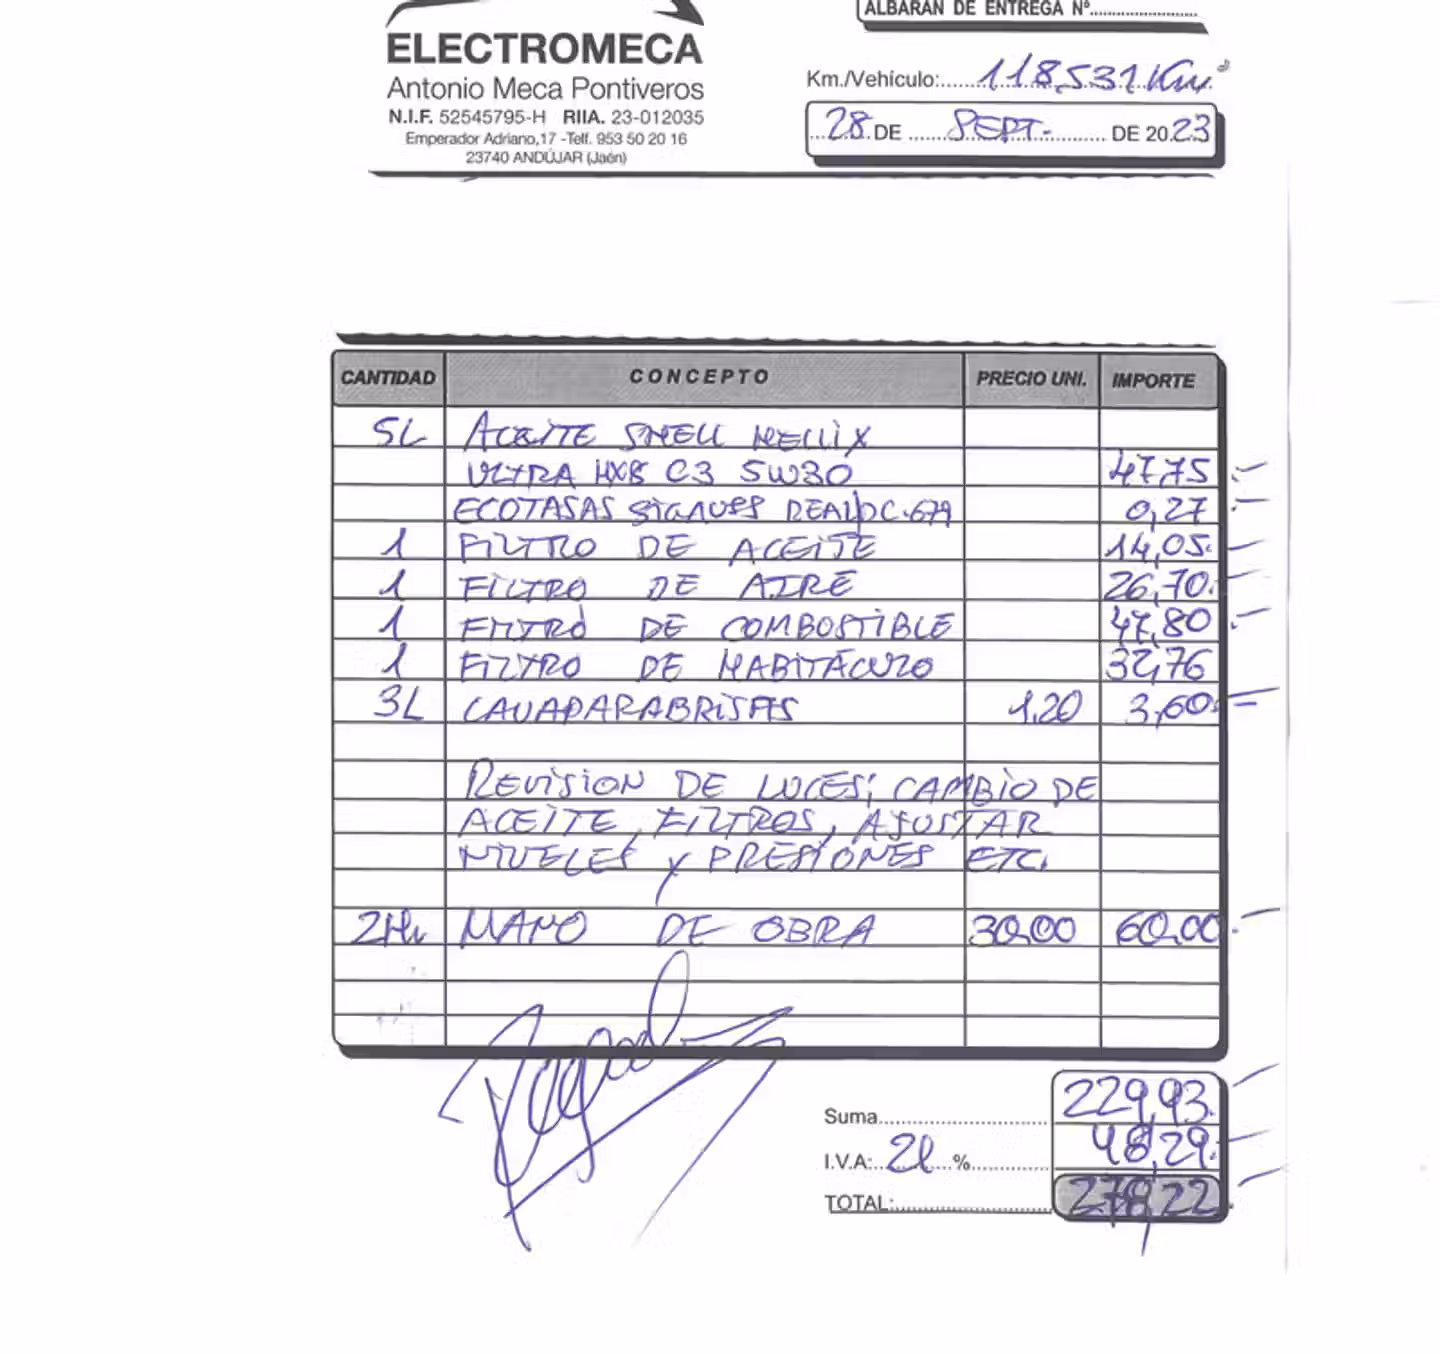 ALBARÁN DE ENTREGA Nº
ELECTROMECA
Antonio Meca Pontiveros
N.I.F. 52545795-H RIIA. 23-012035
Emperador Adriano,17 -Telf. 953 50 20 16
23740 ANDÚJAR (Jaén)
Km./Vehículo: 118,531 Km
28 DE SEPT. DE 2023
CANTIDAD CONCEPTO PRECIO UNI. IMPORTE
5L ACEITE SHELL HELLIX
ULTRA HX8 C3 5W30 47,75
ECOTASAS SIGAUSS REAL DC.679 0,27
1 FILTRO DE ACEITE 14,05
1 FILTRO DE AIRE 26,70
1 FILTRO DE COMBOSTIBLE 47,80
1 FILTRO DE HABITÁCULO 32,76
3L LAVAPARABRISAS 1,20 3,60
REVISION DE LUCES, CAMBIO DE
ACEITE, FILTROS, AJUSTAR
NIVELES Y PRESIONES ETC.
2H MANO DE OBRA 30,00 60,00
Suma 229,93
I.V.A: 21 % 48,29
TOTAL: 278,22